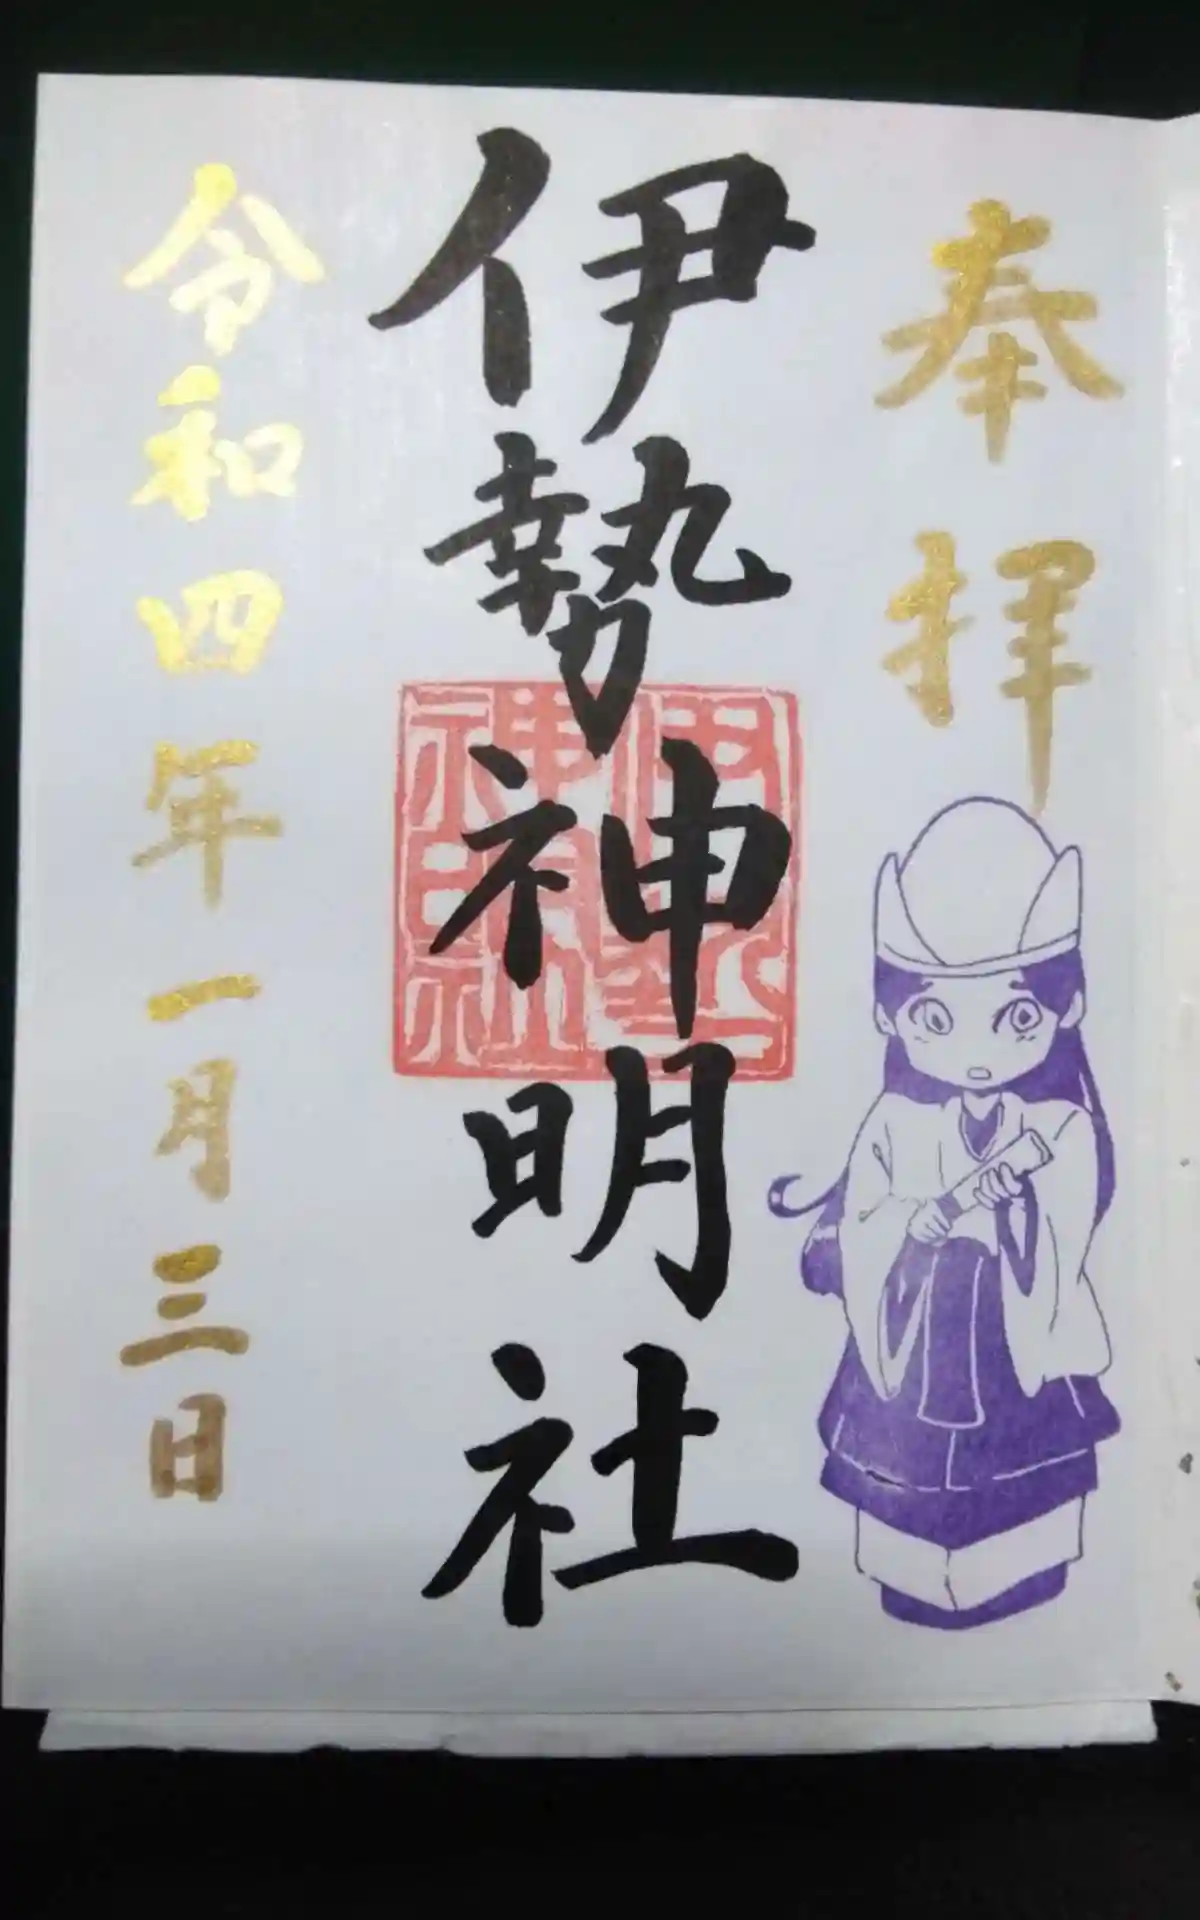 奉拝
伊勢神明社
伊勢
神明社
令和四年一月三日